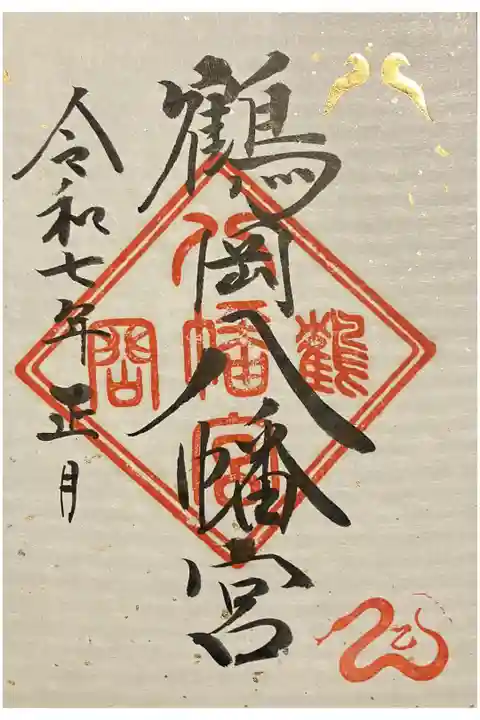 鶴岡八幡宮
令和七年正月
鶴
八幡宮
岡
乙